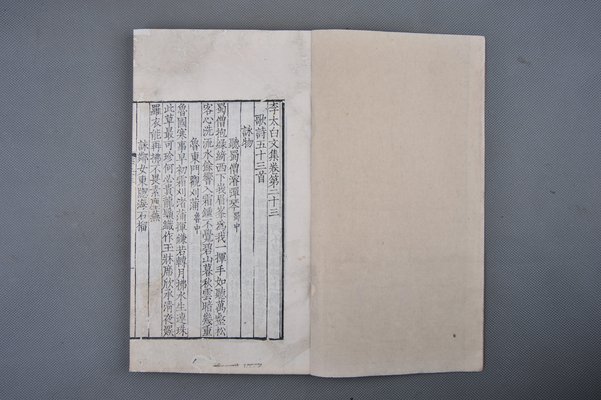 李太白文集卷第二十三
歌詩五十三首
詠物
聽蜀僧濬彈琴蜀中
蜀僧抱綠綺西下峨眉峯爲我一揮手如聽萬壑松
客心洗流水餘響入霜鍾不覺碧山暮秋雲暗幾重
魯東門觀刈蒲魯中
魯國寒事早初霜刈渚蒲揮鎌若轉月拂水生連珠
此草最可珍何必貴龍鬚織作玉牀席欣承清夜娛
羅衣能再拂不畏素塵蕪
詠鄰女東窻海石榴